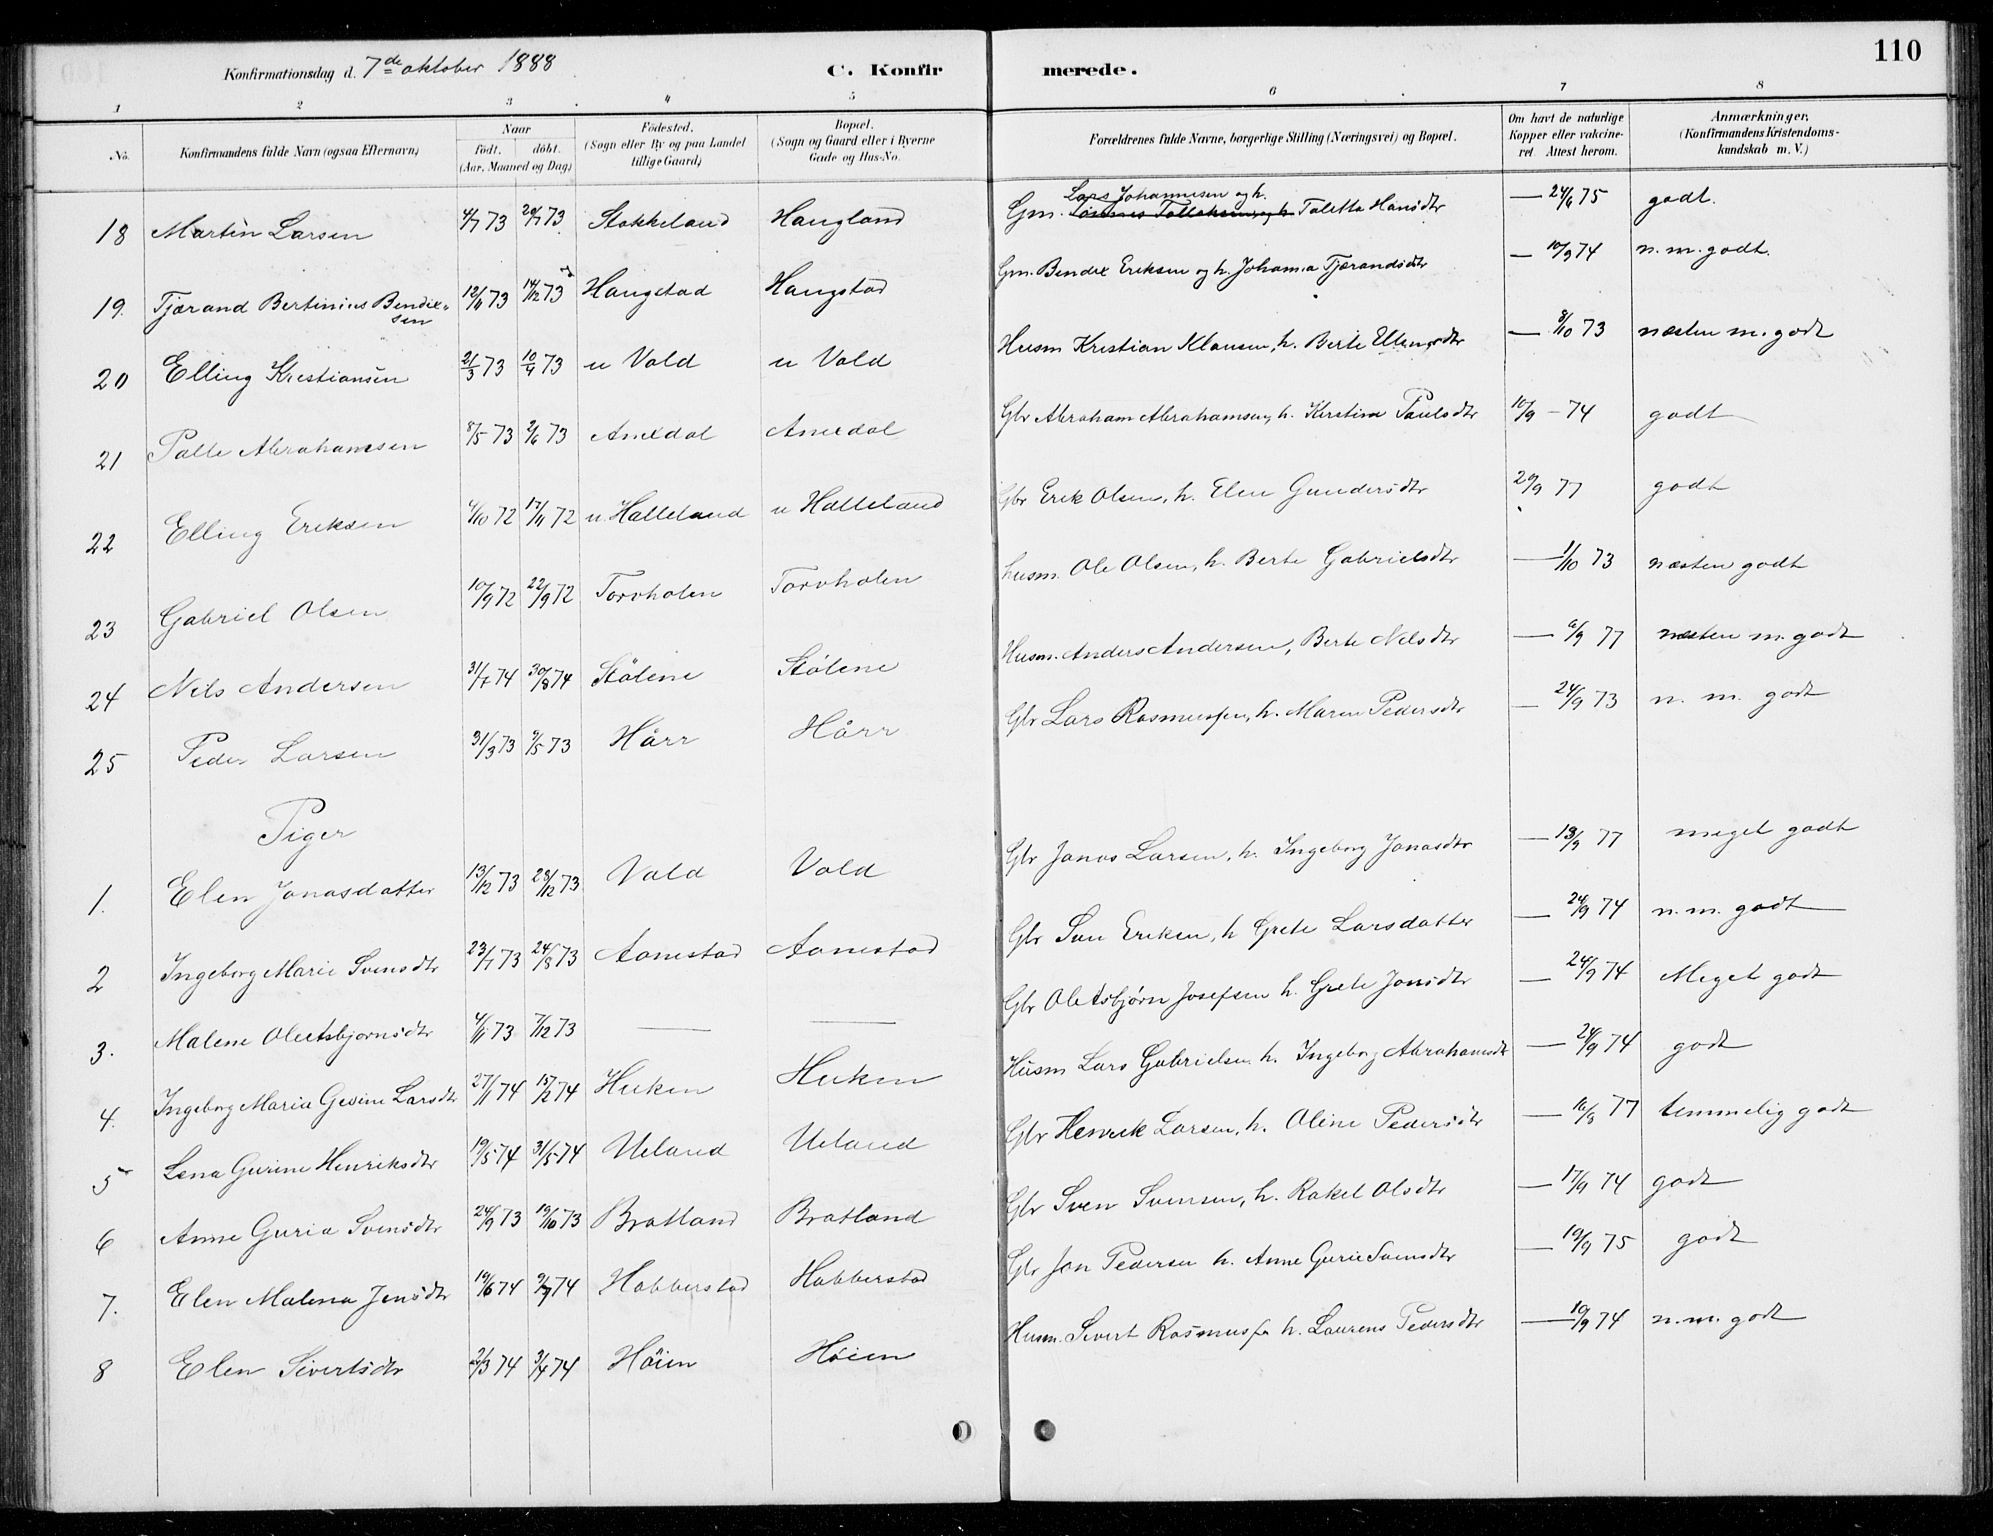 110
Konfirmationsdag d. 7de oktober 1888 C. Konfirmerede.
1 2 3 4 5 6 7 8
No. Konfirmandens fulde Navn (ogsaa Efternavn) Naar født. døbt. (Aar, Maaned og Dag) Fødested. (Sogn eller By og paa Landet tillige Gaard) Bopæl. (Sogn og Gaard eller i Byerne Gade og Hus-No. Forældrenes fulde Navne, borgerlige Stilling (Næringsvei) og Bopæl. Om havt de naturlige Kopper eller vakcineret. Attest herom. Anmærkninger, (Konfirmandens Kristendomskundskab m. V.)
18 Martin Larsen 4/7 73 20/7 73 Stokkeland Haugland Gm. Lars Johannesen og h. Taletta Hansdtr — 24/6 75 godt.
19. Tjærand Bertinius Bendixsen 12/11 73 14/12 73 Haugstad Haugstad Gm. Bendix Eriksen og h. Johanna Tjærandsdtr — 10/9 74 n. m. godt.
20 Elling Kristiansen 21/3 73 10/4 73 u Vold u Vold Husm Kristian Klausen, h. Berte Ellingsdtr — 8/10 73 næsten m. godt
21 Palle Abrahamsen 8/5 73 2/6 73 Aneldal Aneldal Gbr Abraham Abrahamsen, h. Kirstine Paulsdtr 10/9 - 74 godt
22 Elling Eriksen 4/10 72 17/11 72 u. Halleland u Halleland Gbr Erik Olsen, h. Elen Gundersdtr 20/9 77 godt
23 Gabriel Olsen 10/9 72 22/9 72 Torvholen Torvholen husm. Ole Olsen, h. Berte Gabrielsdtr — 1/10 73 næsten godt
24 Nils Andersen 31/7 74 30/8 74 Stölene Stölene Husm. Anders Andersen, Berte Nilsdtr — 6/9 77 næsten m. godt
25 Peder Larsen 31/3 73 9/5 73 Hårr Hårr Gbr Lars Rasmussen, h. Maren Pedersdtr — 24/9 73 n. m. godt
Piger
1. Elen Jonasdatter 13/12 73 28/12 73 Vold Vold Gbr Jonas Larsen, h. Ingeborg Jonasdtr — 13/9 77 meget godt
2 Ingeborg Marie Svensdtr 23/7 73 24/8 73 Aanestad Aanestad Gbr Sven Eriksen, h Grete Larsdatter — 24/9 74 n. m. godt
3. Malene Oleetsbjørnsdtr 4/11 73 7/12 73 — — Gbr Oletsbjørn Josefsen h. Grete Jonsdtr — 24/9 74 Meget godt
4. Ingeborg Maria Gesine Larsdtr 27/1 74 15/2 74 Huken Huken Husm Lars Gabrielsen h. Ingeborg Abrahamsdtr — 24/9 74 godt
5 Lena Gurine Henriksdtr 19/5 74 31/5 74 Ueland Ueland Gbr Henrik Larsen, h. Oline Pedersdtr — 16/8 77 temmelig godt
6 Anne Guria Svensdtr 24/9 73 19/10 73 Bratland Bratland Gbr Sven Svensen, h. Rakel Olsdtr — 17/9 74 godt
7. Elen Malena Jonsdtr 19/6 74 9/7 74 Hobberstad Hobberstad Gbr Jon Pedersen h. Anne Gurie Svensdtr — 19/9 75 godt
8 Elen Sivertsdtr 2/3 74 3/4 74 Höien Höien Husm. Sivert Rasmussen h. Laurens Pedersdtr — 19/9 74 n. m. godt